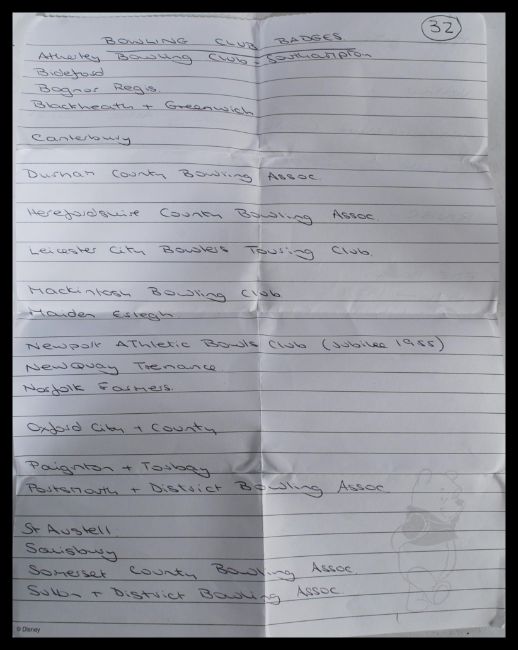 32
BOWLING CLUB BADGES
Atherley Bowling Club - Southampton
Bideford
Bognor Regis.
Blackheath + Greenwich
Canterbury
Durham County Bowling Assoc.
Herefordshire County Bowling Assoc.
Leicester City Bowlers Touring Club.
Mackintosh Bowling Club
Maiden Erlegh
Newport Athletic Bowls Club (Jubilee 1955)
Newquay Trenance
Norfolk Farmers.
Oxford City + County
Paignton + Torbay
Portsmouth + District Bowling Assoc
St Austell.
Salisbury
Somerset County Bowling Assoc.
Sutton + District Bowling Assoc.
© Disney